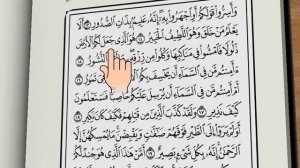 وَأَسِرُّوا۟ قَوْلَكُمْ أَوِ ٱجْهَرُوا۟ بِهِۦٓ إِنَّهُۥ عَلِيمٌۢ بِذَاتِ ٱلصُّدُورِ ١٣ أَلَا
يَعْلَمُ مَنْ خَلَقَ وَهُوَ ٱللَّطِيفُ ٱلْخَبِيرُ ١٤ هُوَ ٱلَّذِى جَعَلَ لَكُمُ ٱلْأَرْضَ
ذَلُولًا فَٱمْشُوا۟ فِى مَنَاكِبِهَا وَكُلُوا۟ مِن رِّزْقِهِۦ ٱلنُّشُورُ ١٥
ءَأَمِنتُم مَّن فِى ٱلسَّمَآءِ أَن يَخْسِفَ بِكُمُ هِىَ تَمُورُ ١٦
أَمْ أَمِنتُم مَّن فِى ٱلسَّمَآءِ أَن يُرْسِلَ عَلَيْكُمْ حَاصِبًا فَسَتَعْلَمُونَ
كَيْفَ نَذِيرِ ١٧ وَلَقَدْ كَذَّبَ ٱلَّذِينَ مِن قَبْلِهِمْ فَكَيْفَ كَانَ نَكِيرِ ١٨
أَوَلَمْ يَرَوْا۟ إِلَى ٱلطَّيْرِ فَوْقَهُمْ صَٰٓفَّٰتٍ وَيَقْبِضْنَ مَا يُمْسِكُهُنَّ إِلَّا
ٱلرَّحْمَٰنُ إِنَّهُۥ بِكُلِّ شَىْءٍۭ بَصِيرٌ ١٩ أَمَّنْ هَٰذَا ٱلَّذِى هُوَ جُندٌ لَّكُمْ